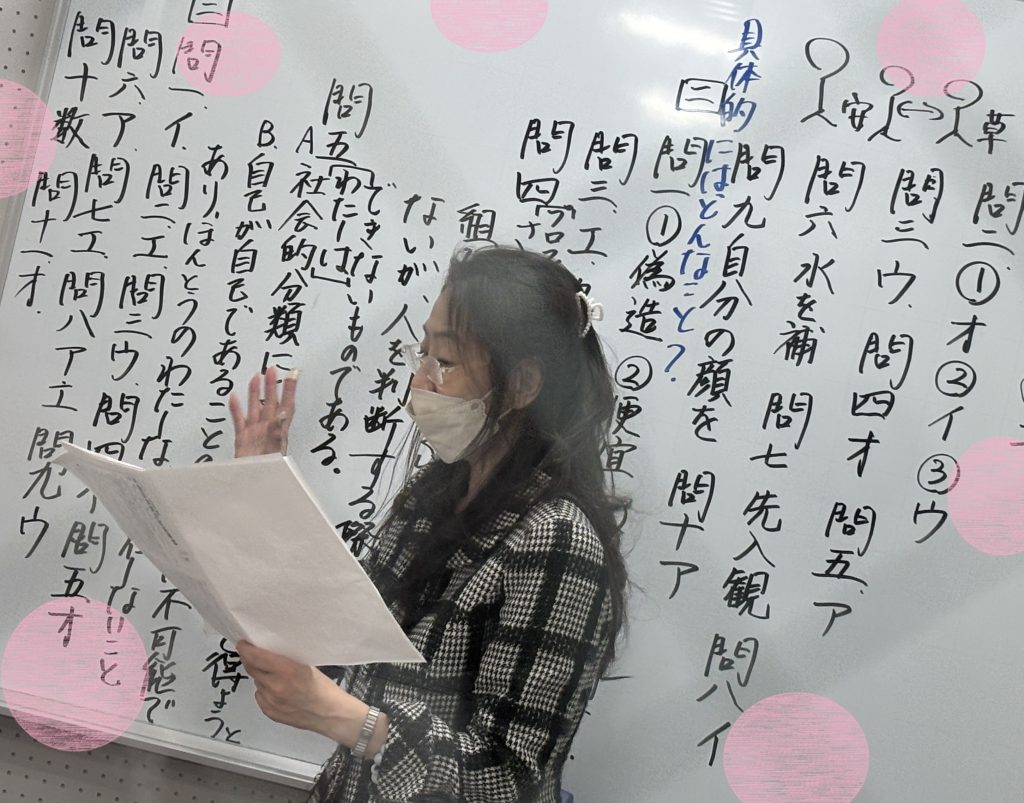 問二、①オ②イ③ウ
草
安
問三、ウ、問四オ 問五、ア
問六 水を補 問七 先入観 問八イ
問九 自分の顔を 問十ア
具体的にはどんなこと?
二
問一①偽造 ②便宜
問三、エ、
問四
ないが、人を判断する
できないものである。
問五「わたしは」
A 社会的分類に
B 自己が自己であること
得ようと
あり、ほんとうのわたし
不可能で
三
問一、イ、問二、エ、問三ウ、問四
問五、オ
問六、ア、問七エ、問八アエ 問九ウ
問十 数 問十一オ、